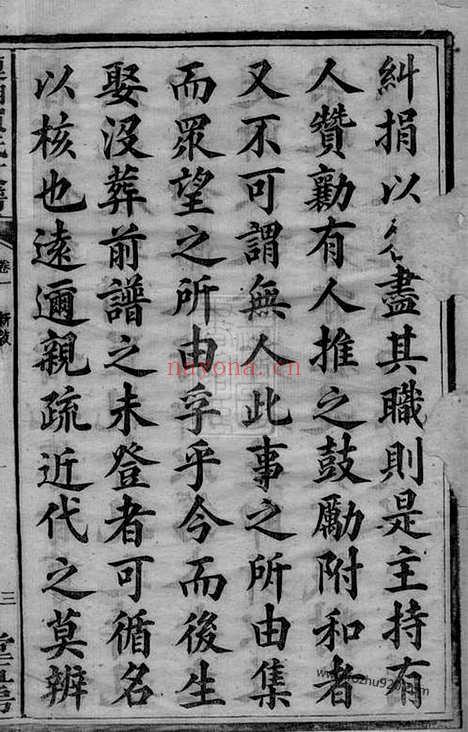 糾捐以各盡其職則是主持有
人贊勷有人推之鼓勵附和者
又不可謂無人此事之所由集
而眾望之所由孚乎今而後生
娶没葬前譜之未登者可循名
以核也遠邇親疏近代之莫辨
卷一
三
nayona.cn